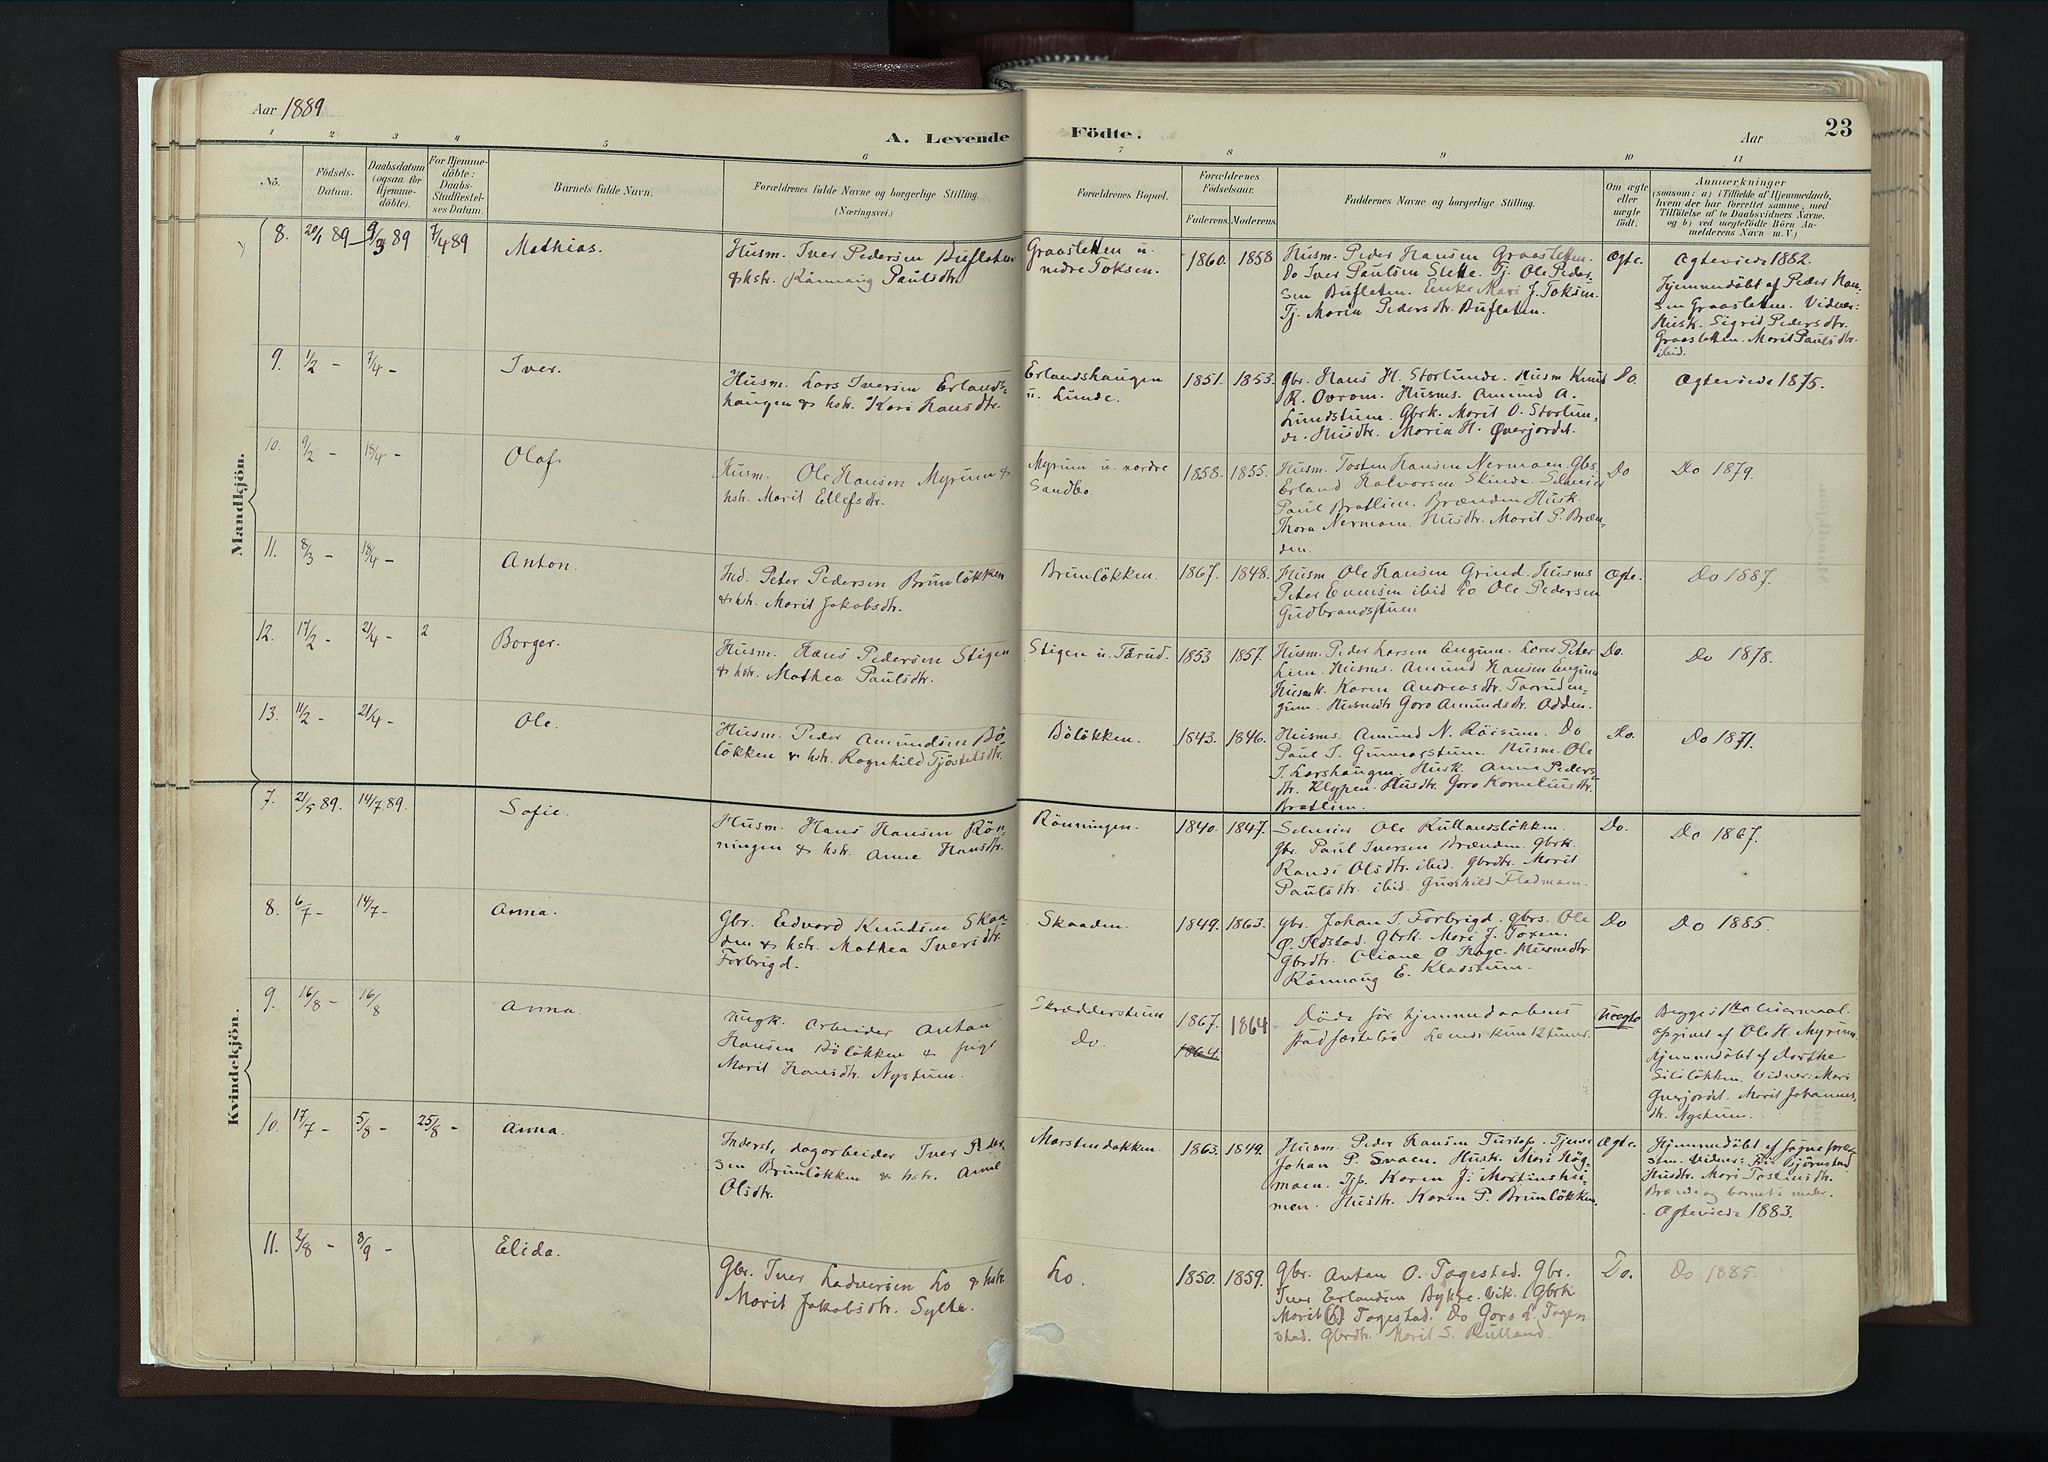 Aar 1889
A. Levende Födte.
Aar
23
1 2 3 4 5 6 7 8 9 10 11
No.
Födsels-
Datum.
Daabsdatum
(ogsaa for
Hjemme-
döbte).
For Hjemme-
döbte:
Daabs-
Stadfæstel-
ses Datum.
Barnets fulde Navn.
Forældrenes fulde Navne og borgerlige Stilling.
(Næringsvei.)
Forældrenes Bopæl.
Forældrenes
Födselsaar.
Faderens. Moderens.
Faddernes Navne og borgerlige Stilling.
Om ægte
eller
uægte
födt.
Anmærkninger
(saasom: a) i Tilfælde af Hjemmedaab,
hvem der har forrettet samme, med
Tilföielse af to Daabsvidners Navne,
og b) ved uægtefödte Börn An-
melderens Navn m. V.)
Mandkjön.
8. 20/1 89 9/3 89 7/4 89 Mathias.
Husm. Iver Pedersen Buflaten
& hstr. Rönnaug Paulsdtr.
Graasletten u.
nedre Toksen.
1860. 1858
Husm. Peder Hansen Graasletten.
Do Iver Paulsen Slette. Tj. Ole Peder-
sen Buflaten. Enke Mari J. Toksen.
Tj. Maria Pedersdtr. Buflaten.
Ægte.
Ægteviede 1882.
Hjemmedöbt af Peder Han-
sen Graasletten. Vidner:
Husk. Sigrid Pedersdtr.
Graasletten. Marit Paulsdtr.
ibid.
9. 1/2 - 7/4 - Iver.
Husm. Lars Iversen Erlands-
haugen & hstr. Kari Hansdtr.
Erlandshaugen
u. Lunde.
1851. 1853.
Gbr. Hans H. Storlunde. Husm Knud
R. Ovrom. Husms. Amund A.
Lundstuen. Gbrk. Marit O. Storlun-
de. Husdtr. Maria H. Øverjordet.
Do.
Ægteviede 1875.
10. 9/2 - 18/4 - Olaf.
Husm. Ole Hansen Myrum &
hstr. Marit Ellefsdtr.
Myrum u. nordre
Sandbo.
1858. 1855.
Husm. Tosten Hansen Nermoen. Gbs.
Erland Halvorsen Skinde.
Paul Bratlien. Brænden Husk.
Thora Nermoen. Husdtr. Marit P. Bræn-
den.
Do
Do 1879.
11. 8/3 - 18/4 - Anton.
Ind. Peter Pedersen Brunlökken
& hstr. Marit Jakobsdtr.
Brunlökken.
1867. 1848.
Husm Ole Hansen Grind. Husms
Peter Evensen ibid Do Ole Pedersen
Gudbrandstuen
Ægte.
Do 1887.
12. 17/2 - 21/4 - 2 Borger.
Husm. Hans Pedersen Stigen
& hstr. Mathea Paulsdtr.
Stigen u. Tarud.
1853 1857.
Husm. Peder Larsen Engum. Lærer Peter
Lien. Husms. Amund Hansen Engum
Husmk. Karen Andreasdtr. Taruden-
gum. Husmdtr Goro Amundsdtr. Odden.
Do.
Do 1878.
13. 11/2 - 21/4 - Ole.
Husm. Peder Amundsen Bö-
lökken & hstr. Ragnhild Tjöstelsdtr.
Bölökken.
1843. 1846.
Husms. Amund N. Röisum. Do
Paul T. Gunnarstuen. Husm. Ole
T. Larshaugen. Husk. Anne Peders-
dtr. Klypen. Husdtr. Goro Korneliusdtr.
Bratlien.
Do.
Do 1871.
Kvindekjön.
7. 21/5 89. 14/7 89. Sofie.
Husm. Hans Hansen Rön-
ningen & hstr. Anne Hansdtr.
Rönningen.
1840. 1847.
Ole Rullandslökken.
gbr. Paul Iversen Brænden. gbrk.
Randi Olsdtr. ibid. gbrdtr. Marit
Paulsdtr. ibid. Gunhild Fladmoen.
Do.
Do 1867.
8. 6/7 - 14/7 - Anna.
Gbr. Edvard Knudsen Skaa-
den & hstr. Mathea Iversdtr.
Forbrigd.
Skaaden.
1849. 1863.
gbr. Johan I. Forbrigd. gbrs. Ole
P. Ildstad. Gbrk. Mari J. Toxen.
Gbrdtr. Oliane O. Hage. Husmdtr.
Rönnaug E. Kladstuen.
Do
Do 1885.
9. 16/8 - 16/8 Anna.
ungk. arbeider Anton
Hansen Bölökken & pige
Marit Hansdtr. Nystuen.
Skrædderstuen
Do.
1867. 1864
1864.
Döde för hjemmedaabens
stadfæstelse Levede kun 12 timer.
Uægte
Begges 1ste Leiermaal.
opgivet af Ole H. Myrum
Hjemmedöbt af Dorthe
Sililökken. Vidner: Mari
Øverjordet. Marit Johannes-
dtr. Nystuen.
10. 17/7 - 5/8 - 25/8 - Anna.
Inderst, dagarbeider Iver Peder-
sen Brunlökken & hstr. Anne
Olsdtr.
Marstendokken.
1863. 1849.
Husm. Peder Hansen Tustop. Tjener
Johan P. Svaen. Hustr. Mari Hög-
moen. Tjp. Karen J. Martinshu-
men. Husdtr. Karen P. Brunlökken.
Ægte.
Hjemmedöbt af sogneprae-
sten. Vidner: Fru Bjørnstad
Husdtr. Mari Tostensdtr.
Brænd og barnets moder.
Ægteviede 1883.
11. 2/8 - 8/9 - Elida.
Gbr. Iver Ladversen Lo & hstr.
Marit Jakobsdtr. Sylte.
Lo.
1850. 1859.
Gbr. Anton O. Tagestad. Gbr.
Iver Erlandsen Bykre. Vik. Gbrk
Marit Tagestad. Do Goro L. Tage-
stad. Gbrdtr. Marit S. Rulland.
Do.
Do 1885.